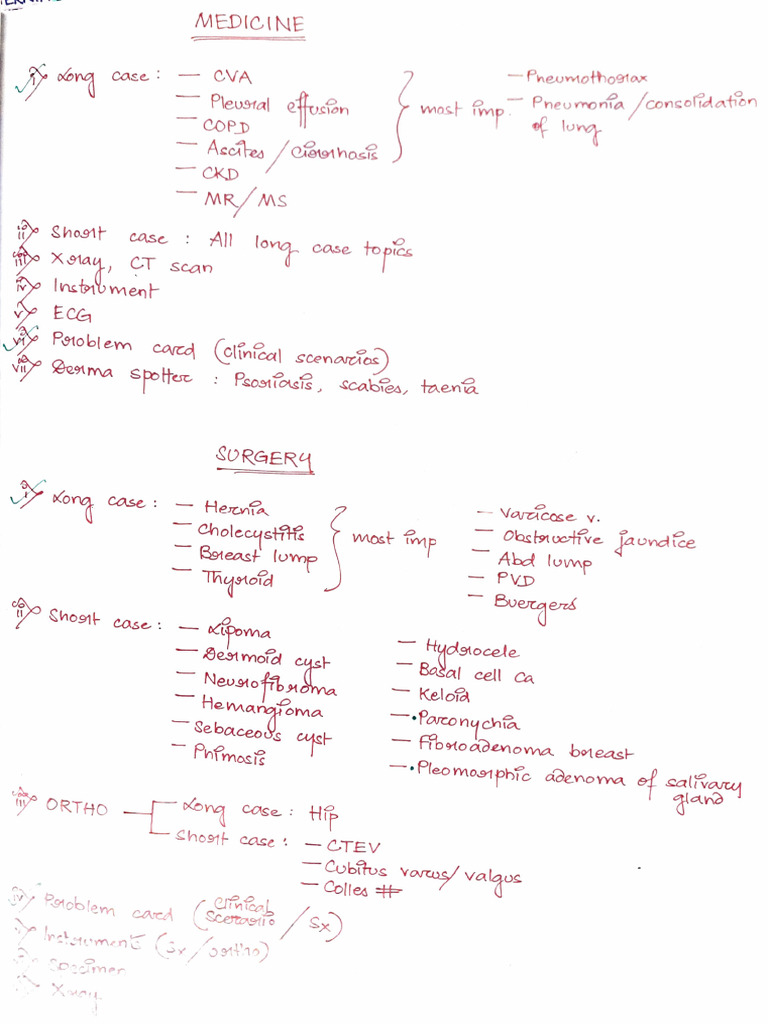 MEDICINE
i) Long case : — CVA
— Pleural effusion
— COPD
— Ascites / Cirrhosis
} most imp.
— CKD
— MR/MS
— Pneumothorax
— Pneumonia/consolidation
of lung
ii) Short case : All long case topics
iii) Xray, CT scan
iv) Instrument
v) ECG
vi) Problem card (clinical scenarios)
vii) Derma spotter : Psoriasis, scabies, taenia
SURGERY
i) Long case : — Hernia
— Cholecystitis
— Breast lump
— Thyroid
} most imp
— Varicose v.
— Obstructive jaundice
— Abd lump
— PVD
— Buergers
ii) Short case : — Lipoma
— Dermoid cyst
— Neurofibroma
— Hemangioma
— Sebaceous cyst
— Phimosis
— Hydrocele
— Basal cell Ca
— Keloid
— Paronychia
— Fibroadenoma breast
— Pleomorphic adenoma of salivary
gland
iii) ORTHO — Long case : Hip
Short case : — CTEV
— Cubitus varus/valgus
— Colles #
iv) Problem card (clinical scerario / Sx)
Instrument (Sx/ortho)
Specimen
Xray